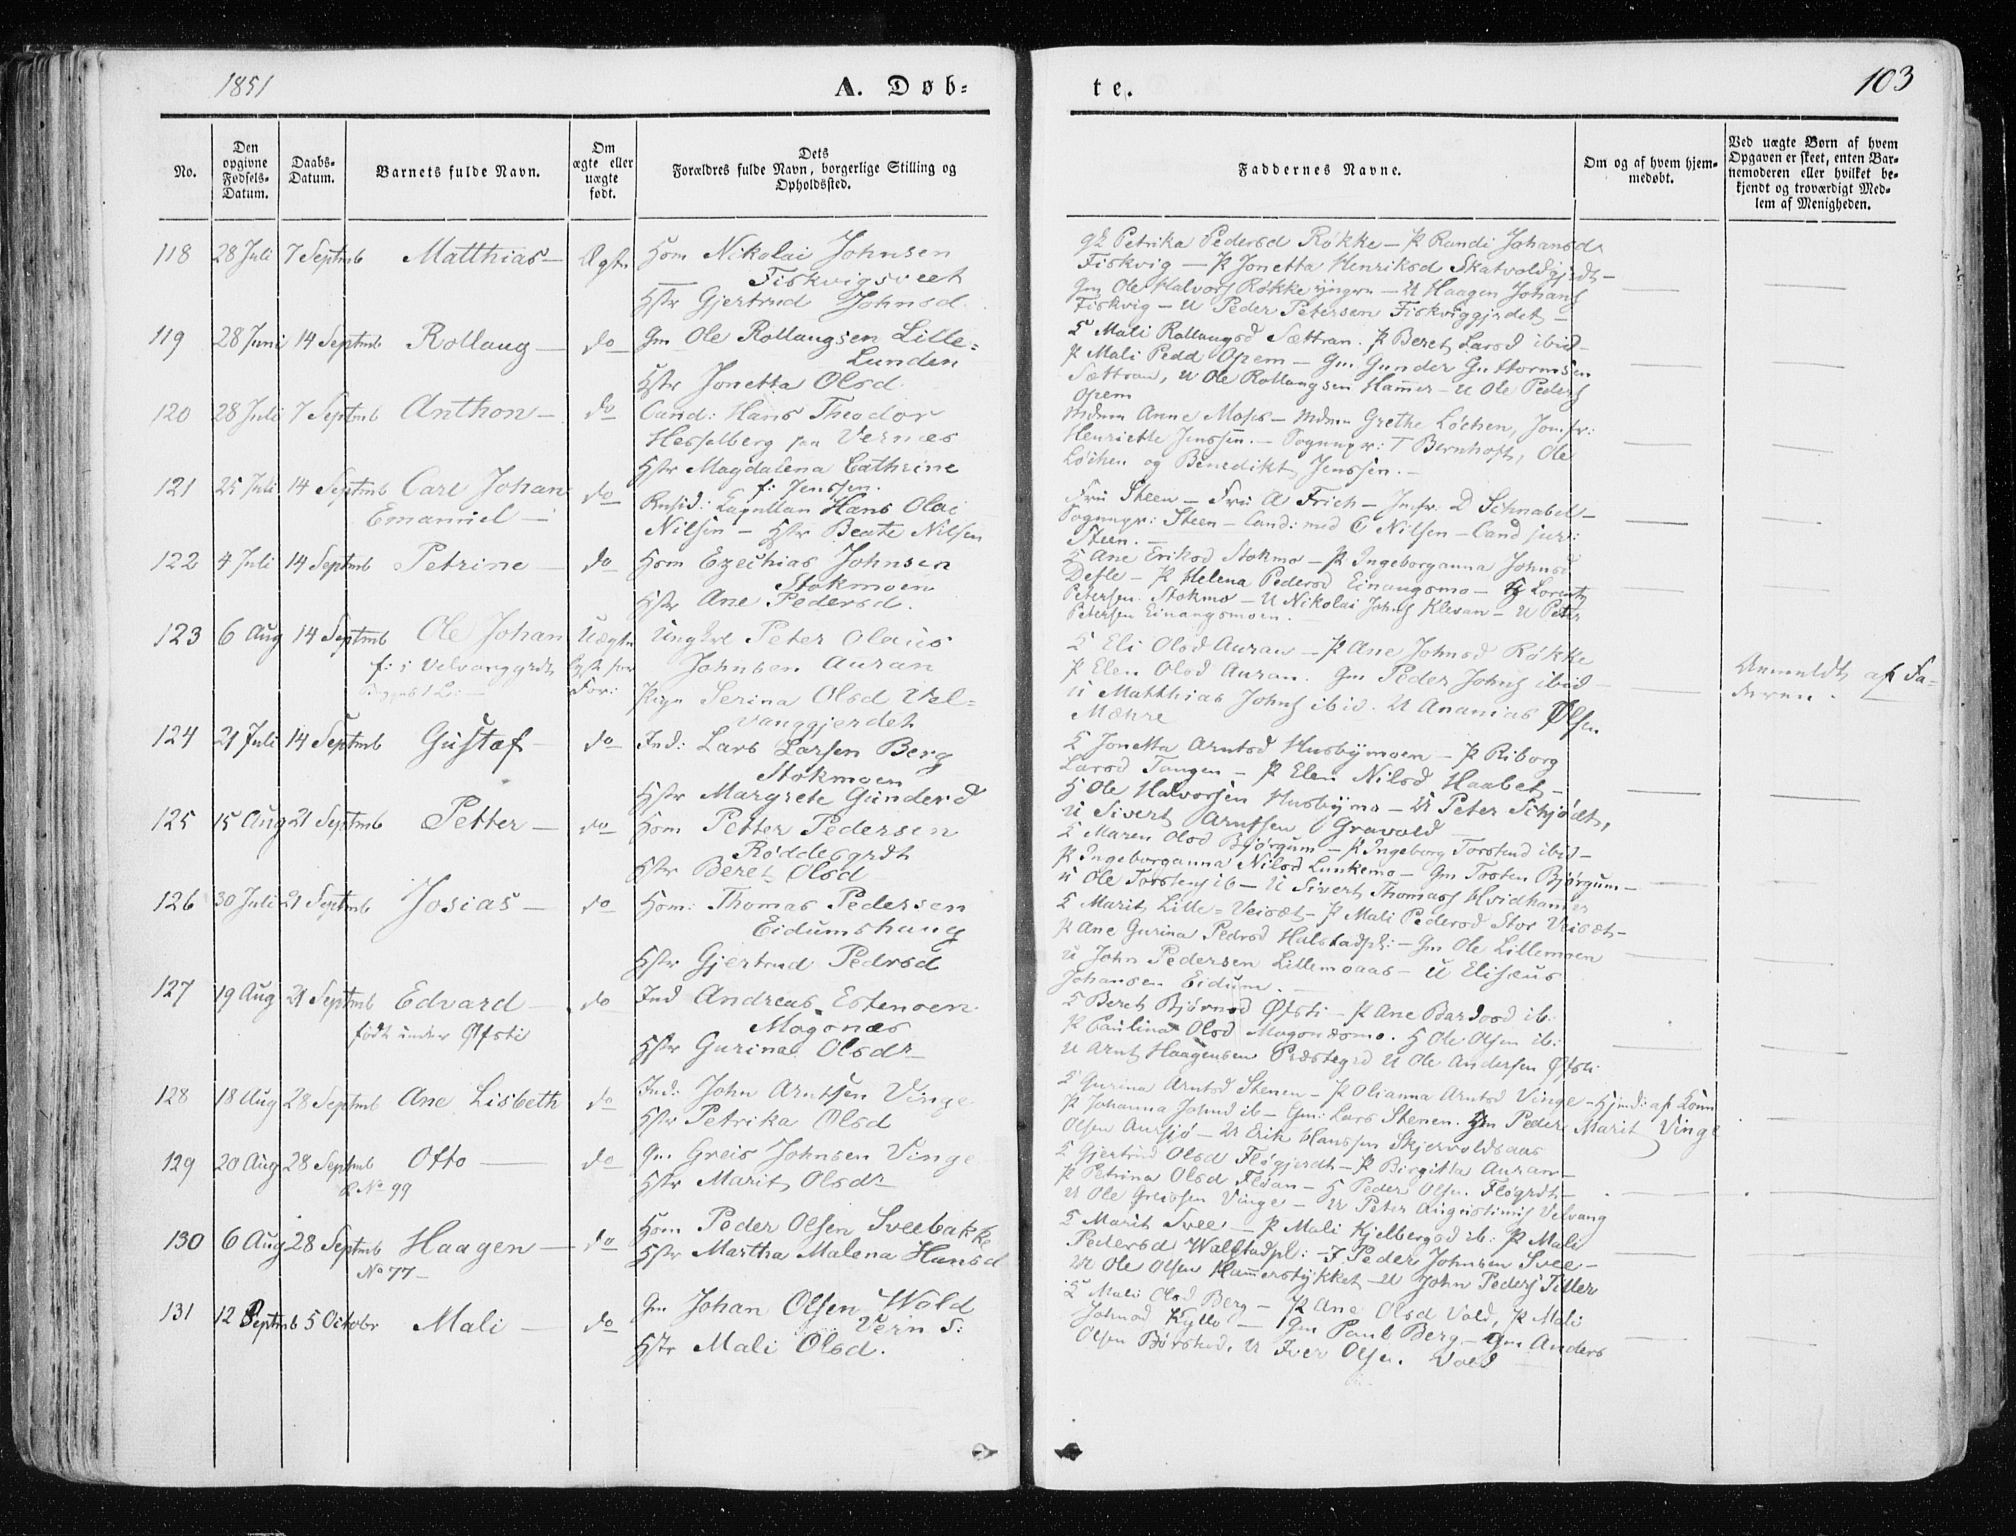 1851
A. Døb-
te.
103
No.
Den opgivne Fødsels-Datum.
Daabs-Datum.
Barnets fulde Navn.
Om ægte eller uægte født.
Dets Forældres fulde Navn, borgerlige Stilling og Opholdssted.
Faddernes Navne.
Om og af hvem hjem-medøbt.
Ved uægte Børn af hvem Opgaven er skeet, enten Bar-nemoderen eller hvilket be-kjendt og troværdigt Med-lem af Menigheden.
118 28 Juli 7 Septmb Matthias — Ægte Hom Nikolai Johnsen
Fiskvigsveet
Hstr Gjertrud Johnsd.
gk Petrika Pedersd Røkke — P Randi Johansd
Fiskvig — P Jonetta Henriksd Skatvoldgjrdt —
Gm Ole Halvors Røkke yngre — U Haagen Johans
Fiskvig — U Peder Petersen Fiskviggjerdet —
119 28 Juni 14 Septmb Rollaug — do Gm Ole Rollaugsen Lille-
Lunden
Hstr Jonetta Olsd.
K Mali Rollaugsd Sættran. P Beret Larsd ibid —
P Mali Pedd Opem — Gm Gunder Guttormsen
Sættran, U Ole Rollaugsen Hammer — U Ole Peders
Opem
120 28 Juli 7 Septmb Anthon — do Cand: Hans Theodor
Hesselberg paa Vernæs
Hstr Magdalena Cathrine
f: Jenssen.
Mdm Anne Moses — Mdm Grethe Løchen, Jomfr:
Henriette Jenssen. — Sognepr: T Bernhoft, Ole
Løchen og Benedikt Jenssen. —
121 25 Juli 14 Septmb Carl Johan
Emanuel —
do Resid: Capellan Hans Olai
Nilsen — Hstr Beate Nilsen
Fru Steen — Fru A Frich — Jmfr. D Schnabel —
Sognepr: Steen — Cand: med C Nilsen — Cand jur:
Steen. —
122 4 Juli 14 Septmb Petrine — do Hom Ezechias Johnsen
Stokmoen
Hstr Ane Pedersd.
K Ane Eriksd Stokmo — P Ingeborganna Johnsd
Defle — P Helena Pedersd Einangsmo — G Lorents
Petersen Stokmo — U Nikolai Johns Klevan — U Peter
Petersen Einangsmoen. —
123 6 Aug 14 Septmb Ole Johan
f: i Velvanggrdt
Uægte
Ungkrl Peter Olaus
Johnsen Auran
Pige Serina Olsd Vel-
vanggjerdet
K Eli Olsd Auran — P Ane Johnsd Røkke
P Elen Olsd Auran. Gm Peder Johns ibid —
U Matthias Johns ibid. U Ananias Olsen
Mæhre
Anmeldt af Fa-
deren.
124 21 Juli 14 Septmb Gustaf — do Ind: Lars Larsen Berg
Stokmoen
Hstr Margrete Gundersd
K Jonetta Arntsd Husbymoen — P Riborg
Larsd Tangen — P Elen Nilsd Haabet —
G Ole Halvorsen Husbymo — U Peter Schjødt,
U Sivert Arntsen Gravold —
125 15 Aug 21 Septmb Petter — do Hom Petter Pedersen
Røddesgrdt
Hstr Beret Olsd
K Maren Olsd Bjørgum — P Ingeborg Torstensd ibid —
P Ingeborganna Nilsd Lunkemo — Gm Torsten Bjørgum —
U Ole Torstens ib — U Sivert Thomas Hvidhammer
126 30 Juli 21 Septmb Josias — do Hom: Thomas Pedersen
Eidumshaug
Hstr Gjertrud Pedrsd
K Marit Lille-Veisæt — P Mali Pedersd Stor Veisæt —
P Ane Gurina Pedrsd Halstadpl: — Gm Ole Lillemoen
U John Pedersen Lillemoaas — U Elisæus
Johansen Eidum. —
127 19 Aug 21 Septmb Edvard —
født under Øfsti
do Ind Andreas Estensen
Mogonæs
Hstr Gurina Olsdr
K Beret Bjørnsd Øfsti — P Ane Bardosd ib:
P Paulina Olsd Mogonæsmo. G Ole Olsen ib:
U Arnt Haagensen Præstegrd U Ole Andersen Øfsti
128 18 Aug 28 Septmb Ane Lisbeth do Ind: John Arntsen Vinge
Hstr Petrika Olsd
K Gurina Arntsd Stenen — P Olianna Arntsd Vinge —
P Johanna Johnsd ib — Gm: Lars Stenen. Gm Peder
Olsen Aursjø — U Erik Hanssen Skjervoldsaas
Hjmd: af Konn
Marit Vinge
129 20 Aug 28 Septmb Otto —
No 99
do Gm Greis Johnsen Vinge
Hstr Marit Olsdr
K Gjertrud Olsd Fløgjerdt — P Birgitta Auran —
P Petrina Olsd Fløan — G Peder Olsen Fløgrdt —
U Ole Greissen Vinge — U Peter Augustinus Velvang
130 6 Aug 28 Septmb Haagen —
No 77 —
do Hom Peder Olsen Sveebakke
Hstr Martha Malena Hansd
K Marit Svee — P Mali Kjelbergsd ib: P Mali
Pedersd Walstadpl: — G Peder Johnsen Svee —
U Ole Olsen Hammerstykket — U John Peders Tiller
131 12 Septmb 5 Octobr Mali — do Gm Johan Olsen Wold
Vern S:
Hstr Mali Olsd.
K Mali Olsd Berg — P Ane Olsd Vold, P Mali
Johnsd Kyllo — Gm Paul Berg — Gm Anders
Olsen Børstad, U Iver Olsen. Vold